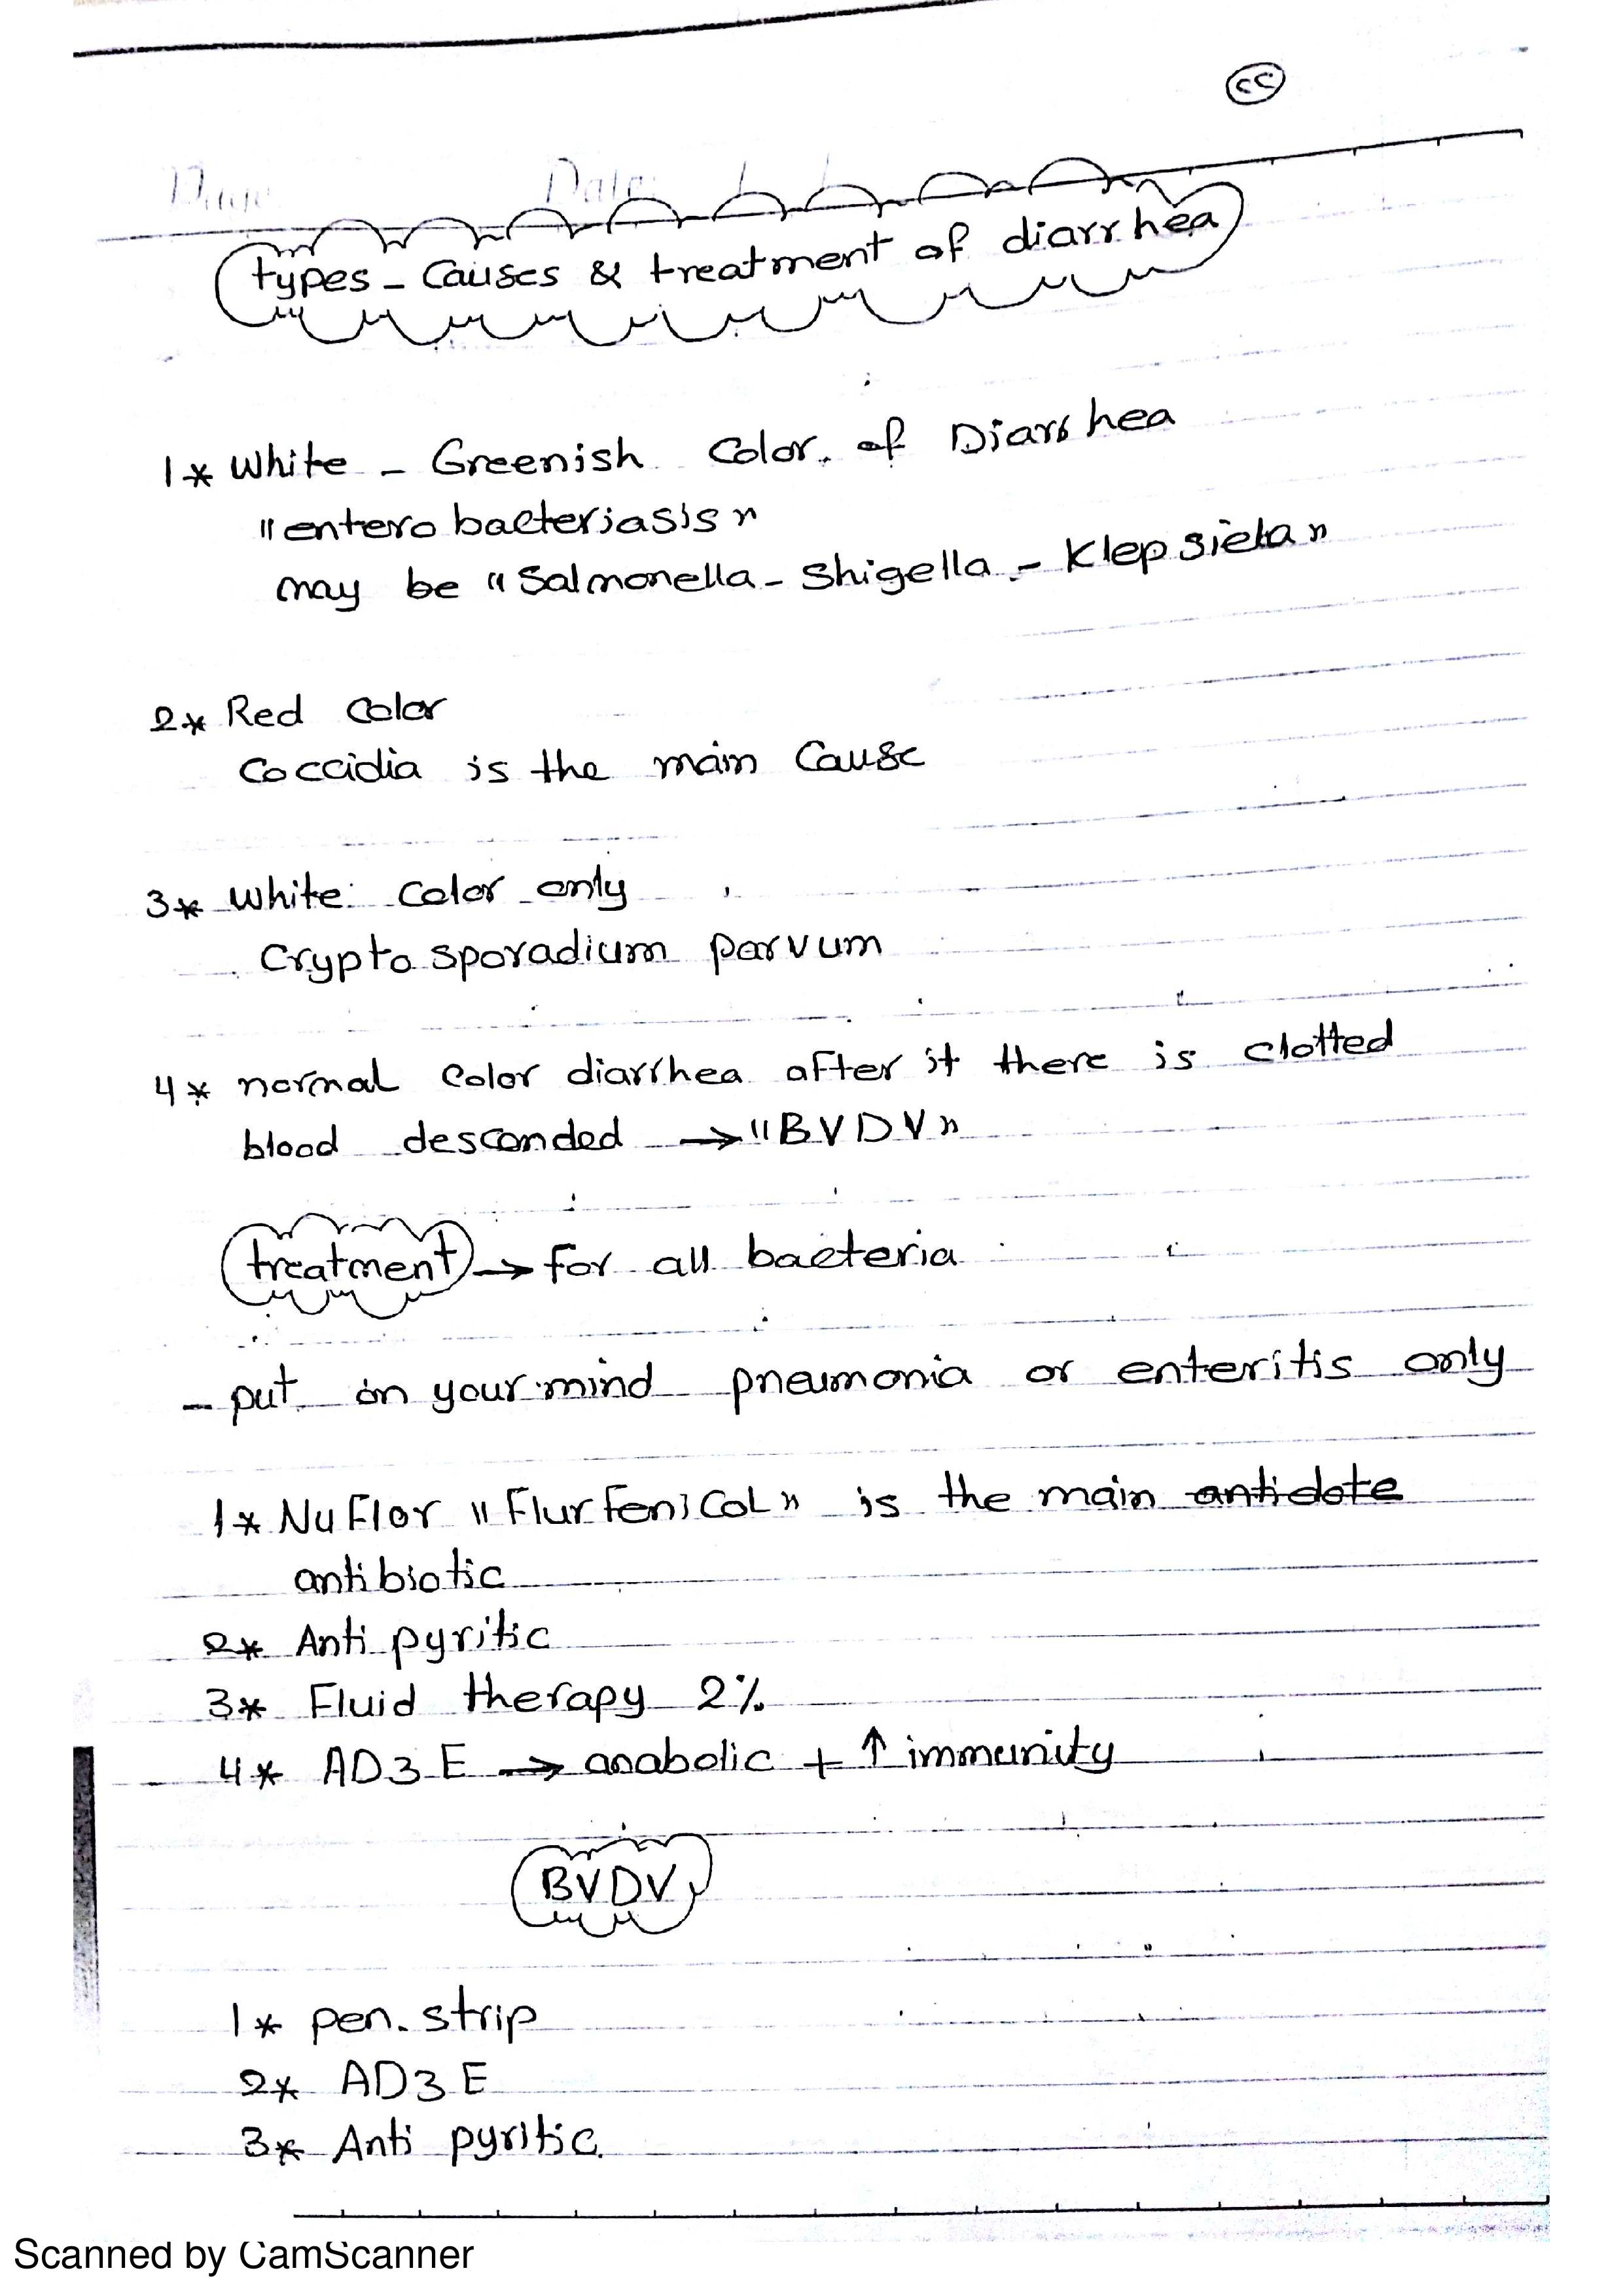 cc
Date: / /
types - Causes & treatment of diarrhea
1* White - Greenish Color of Diarrhea
"entero bacteriasis"
may be "Salmonella - Shigella - Klepsiela"
2* Red Color
Coccidia is the main Cause
3* White Color only
Crypto sporadium parvum
4* normal Color diarrhea after it there is clotted
blood desconded → "BVDV"
treatment → for all bacteria
- put in your mind pneumonia or enteritis only
1* NuFlor "FlurFeniCoL" is the main antidote
antibiotic
2* Anti pyritic
3* Fluid therapy 2%
4* AD3E → anabolic + ↑ immunity
BVDV
1* pen.strip
2* AD3E
3* Anti pyritic.
Scanned by CamScanner